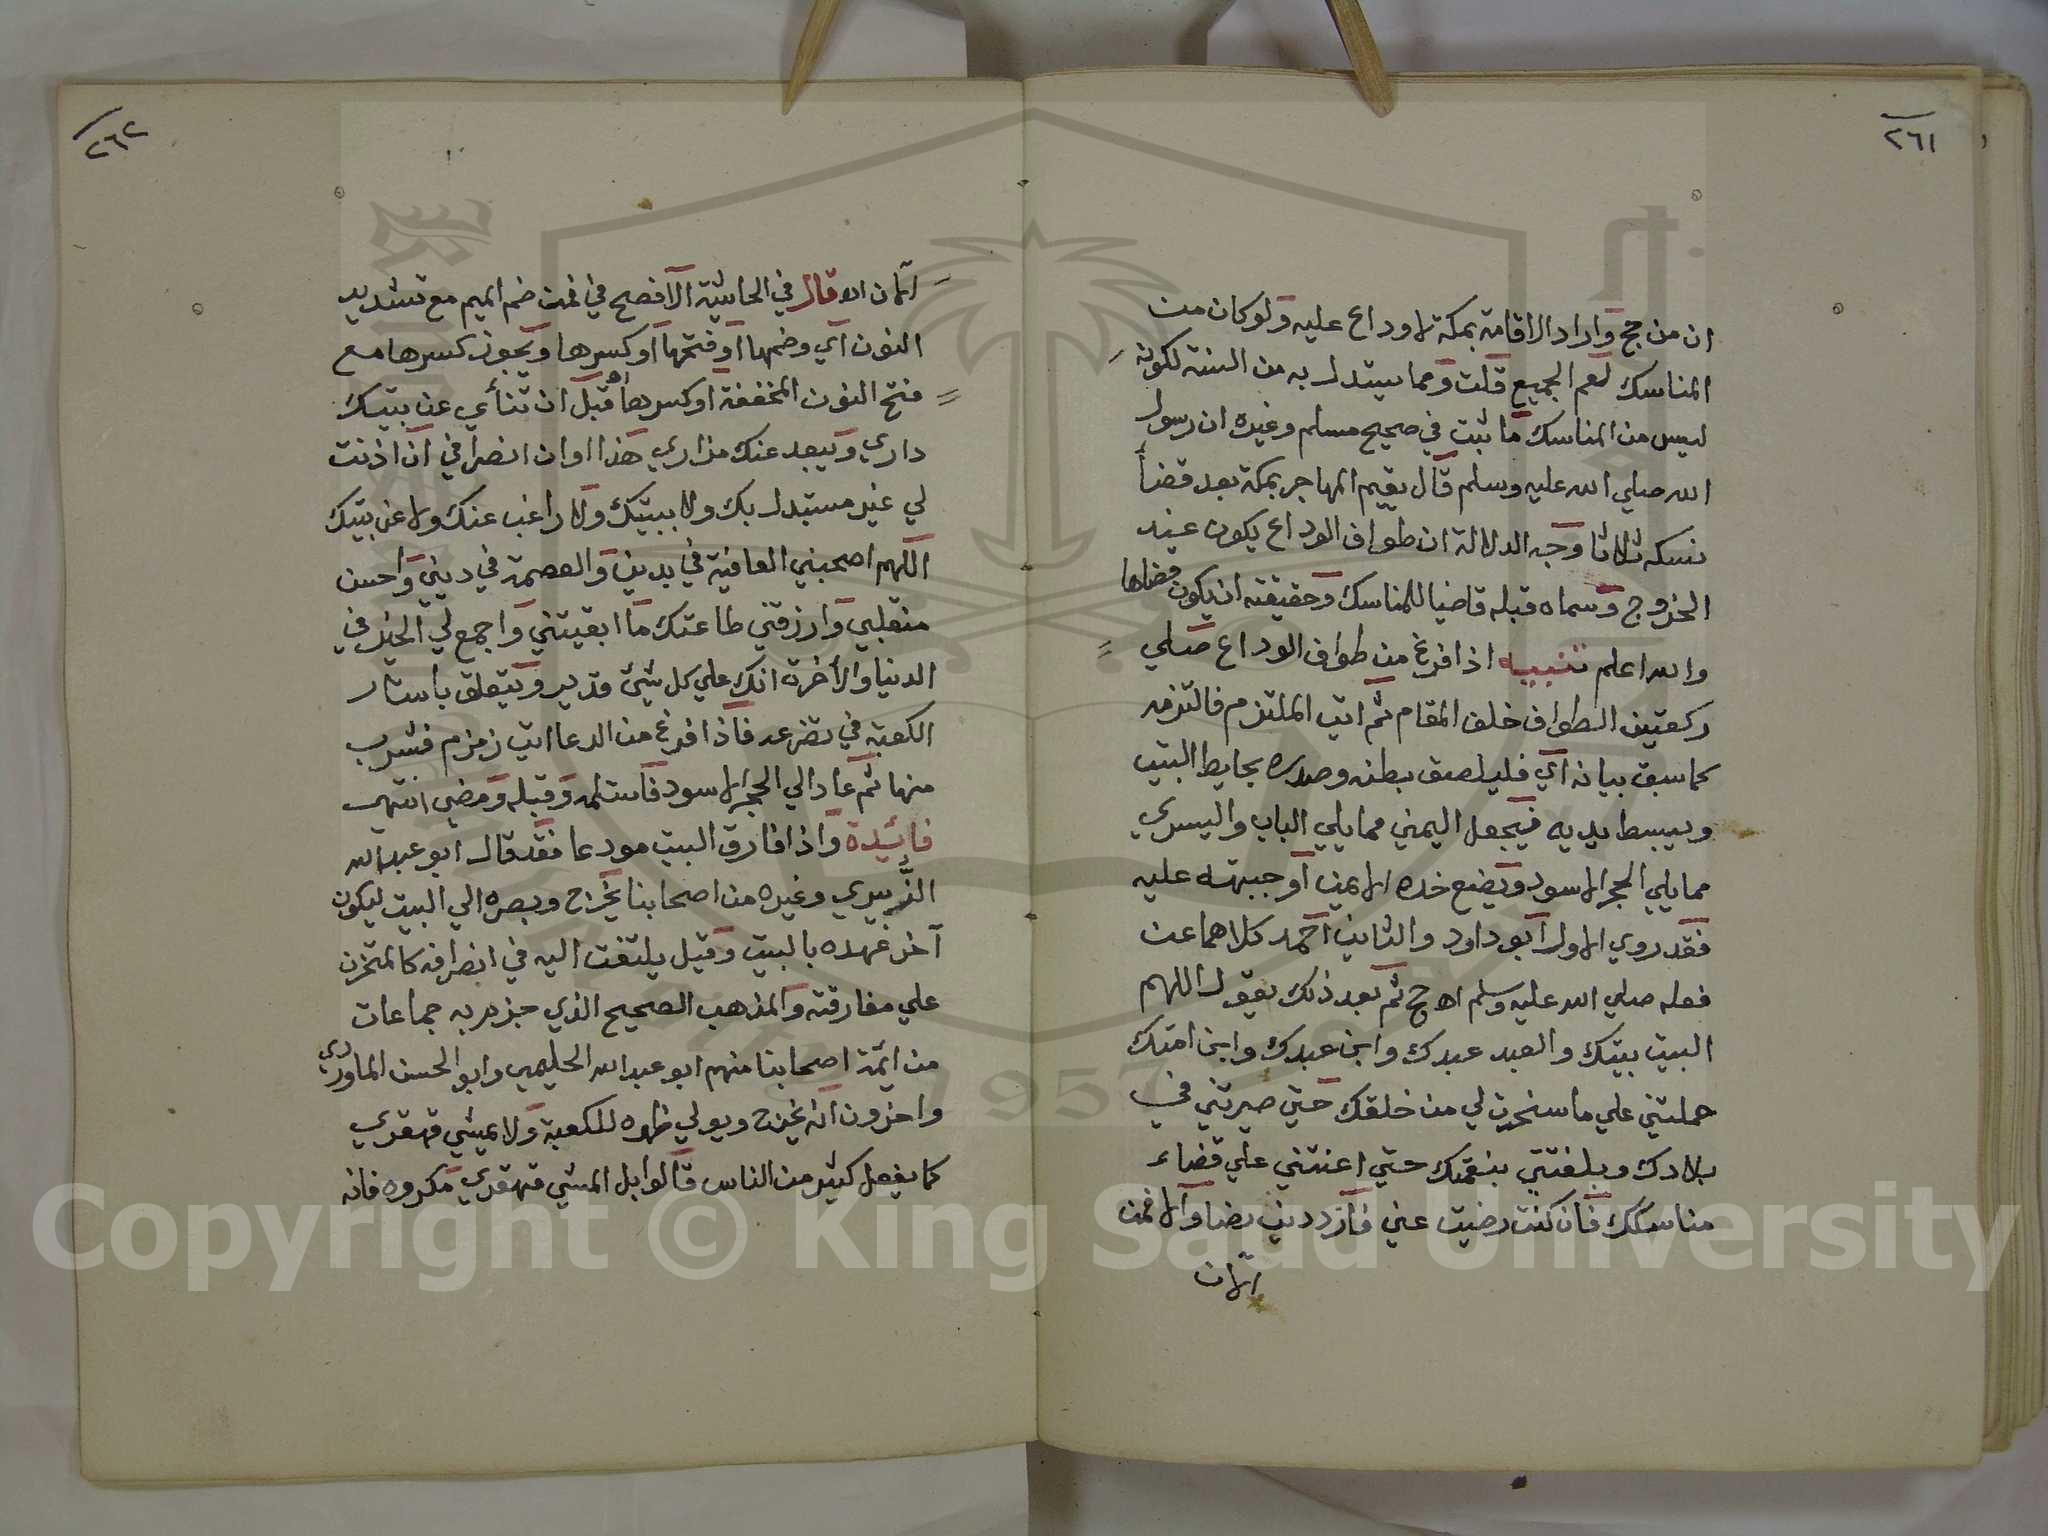 ٢٦١
ان من حج واراد الاقامة بمكة لا وداع عليه ولو كان من
المناسك لعم الجميع قلت ومما يستدل به من السنة لكونه
ليس من المناسك ما ثبت في صحيح مسلم وغيره ان رسول
الله صلي الله عليه وسلم قال يقيم المهاجر بمكة بعد قضأ
نسكه ثلاثا وجه الدلالة ان طواف الوداع يكون عند
الخروج وسماه قبله قاضيا للمناسك وحقيقته ان يكون قضاها
والله اعلم تنبيه اذا فرغ من طواف الوداع صلي
ركعتين الطواف خلف المقام ثم اتي الملتزم فالتزمه
كما سبق بيانه اي فليلصق بطنه وصدره بحايط البيت
ويبسط يديه فيجعل اليمني مما يلي الباب واليسري
مما يلي الحجر الاسود ويضع خده الايمن او جبهته عليه
فقد روي الاول ابو داود والثاني احمد كلاهما عن
فعله صلي الله عليه وسلم اهـ ح ثم بعد ذلك يقول اللهم
البيت بيتك والعبد عبدك وابن عبدك وابن امتك
حملتني علي ما سخرت لي من خلقك حتي صيرتني في
بلادك وبلغتني بنعمتك حتي اعنتني علي قضاء
مناسكك فان كنت رضيت عني فازدد عني رضا والا فمن
الآن
٢٦٢
الآن اهـ قال في الحاشية الافصح في فمن ضم الميم مع تشديد
النون اي وضمها او فتحها او كسرها ويجوز كسرها مع
فتح النون المخففة او كسرها اهـ قبل ان تنأي عن بيتك
داري ويبعد عنك مزاري هذا اوان انصرافي ان اذنت
لي غير مستبدل بك ولا ببيتك ولا راغب عنك ولا عن بيتك
اللهم اصحبني العافية في بدني والعصمة في ديني واحسن
منقلبي وارزقني طاعتك ما ابقيتني واجمع لي الخير في
الدنيا والأخرة انك علي كل شئ قدير ويتعلق بأستار
الكعبة في تضرعه فاذا فرغ من الدعا اتي زمزم فشرب
منها ثم عاد الي الحجر الاسود فاستلمه وقبله ومضي انتهي
فائدة واذا فارق البيت مودعا فقد قال ابو عبد الله
الزُّبيري وغيره من اصحابنا يخرج وبصره الي البيت ليكون
آخر عهده بالبيت وقيل يلتفت اليه في انصرافه كالمتحزن
علي مفارقته والمذهب الصحيح الذي جزم به جماعات
من ائمة اصحابنا منهم ابو عبد الله الحليمي وابو الحسن الماوردي
واخرون انه يخرج ويولي ظهره للكعبة ولا يمشي قهقري
كما يفعل كثير من الناس قالوا بل المشي قهقري مكروه فانه
Copyright © King Saud University
1957